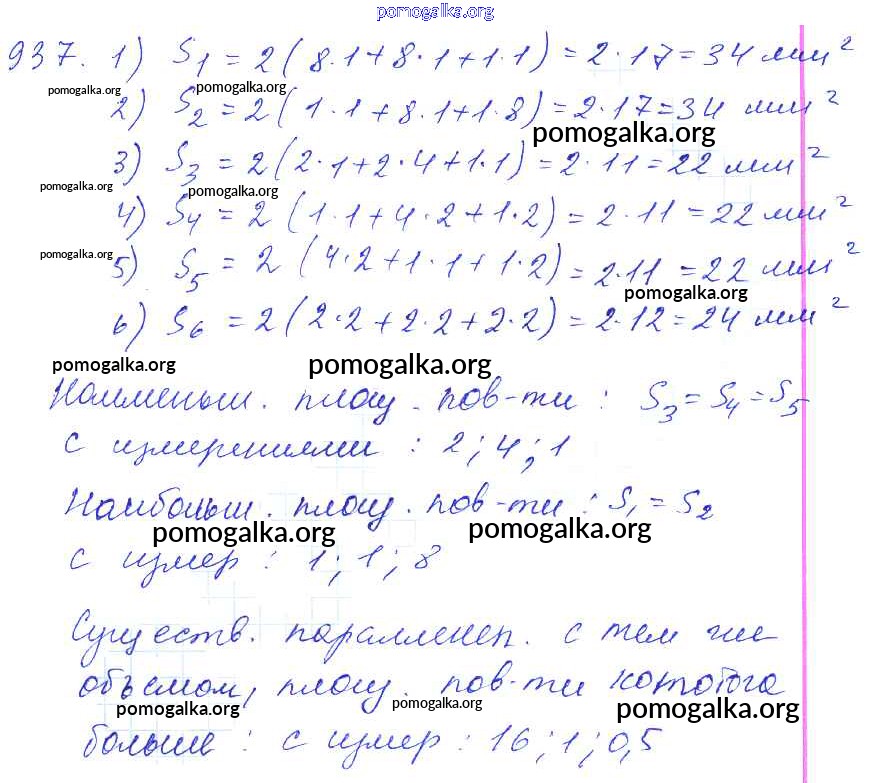 pomogalka.org
937. 1) S1 = 2(8·1+8·1+1·1) = 2·17=34 мм²
pomogalka.org pomogalka.org
2) S2 = 2(1·1+8·1+1·8) = 2·17=34 мм²
pomogalka.org
3) S3 = 2(2·1+2·4+1·1) = 2·11=22 мм²
pomogalka.org pomogalka.org
4) S4 = 2(1·1+4·2+1·2) = 2·11=22 мм²
pomogalka.org
5) S5 = 2(4·2+1·1+1·2) = 2·11=22 мм²
pomogalka.org
6) S6 = 2(2·2+2·2+2·2) = 2·12=24 мм²
pomogalka.org pomogalka.org
Наименьш. площ. пов-ти: S3=S4=S5
с измерениями: 2; 4; 1
Наибольш. площ. пов-ти: S1=S2
pomogalka.org pomogalka.org
с измер: 1; 1; 8
Существ. параллелеп. с тем же
объемом, площ. пов-ти которого
pomogalka.org pomogalka.org pomogalka.org
больше: с измер: 16; 1; 0,5